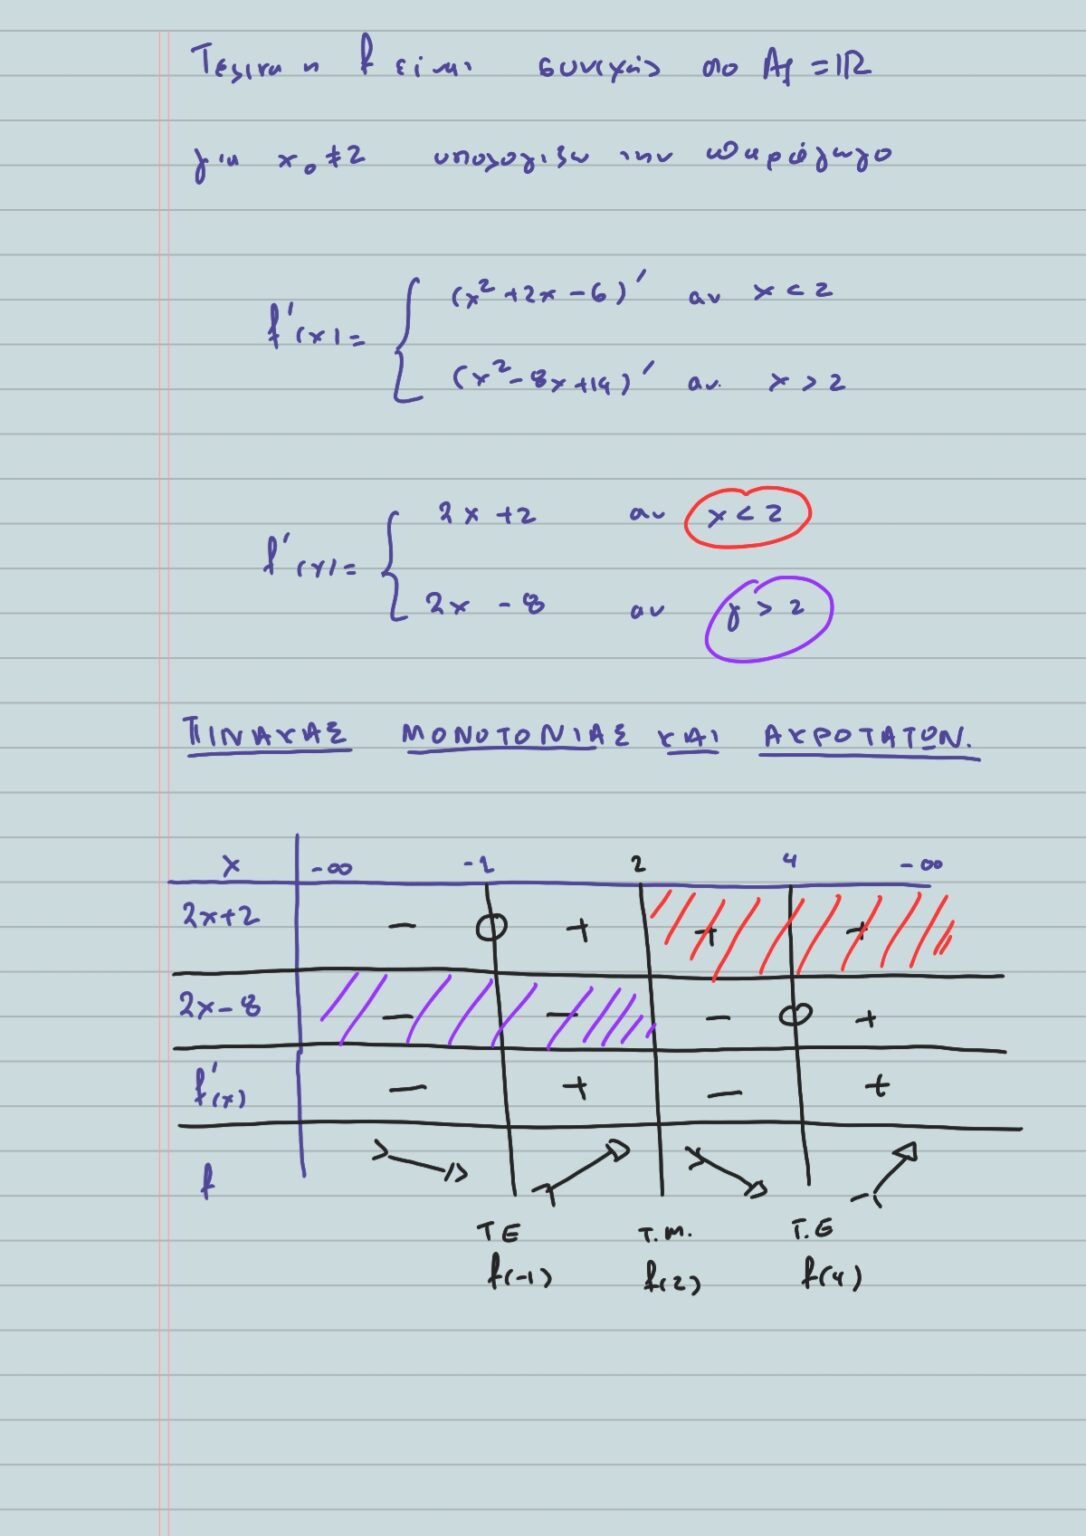 Τελικα η f ειναι συνεχης στο Af = ℝ
για x₀ ≠ 2 υπολογιζω την παραγωγο
f'(x) = { (x² + 2x - 6)' αν x < 2
(x² - 8x + 14)' αν x > 2
f'(x) = { 2x + 2 αν x < 2
2x - 8 αν x > 2
ΠΙΝΑΚΑΣ ΜΟΝΟΤΟΝΙΑΣ ΚΑΙ ΑΚΡΟΤΑΤΩΝ.
x -∞ -1 2 4 -∞
2x+2 - 0 + + +
2x-8 - - - 0 +
f'(x) - + - +
f
ΤΕ Τ.Μ. Τ.Ε
f(-1) f(2) f(4)